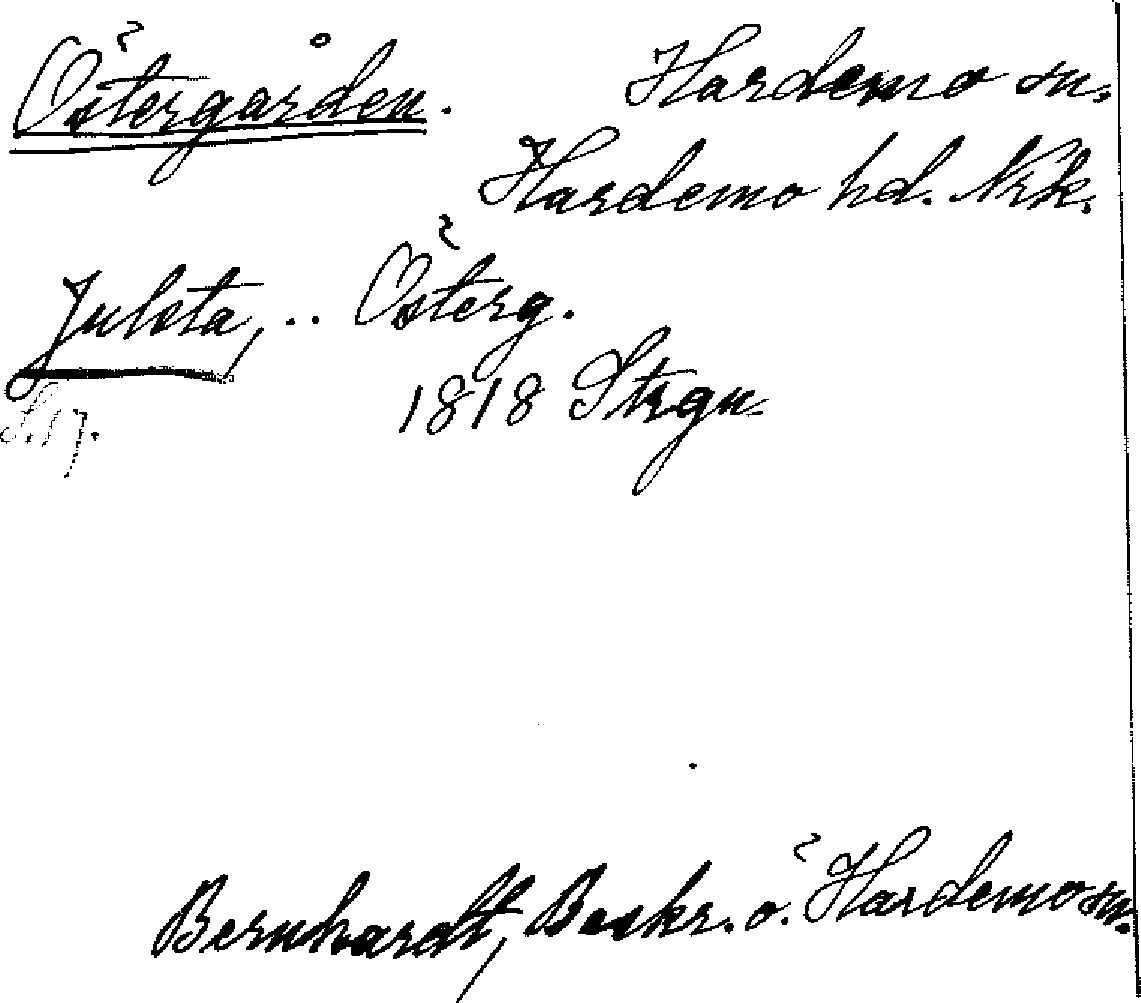 Östergården. Hardemo sn.
Hardemo hd. Nrk.
Julsta, .. Österg.
1818 Strgn.
Bernhardt, Beskr. ö. Hardemo sn.